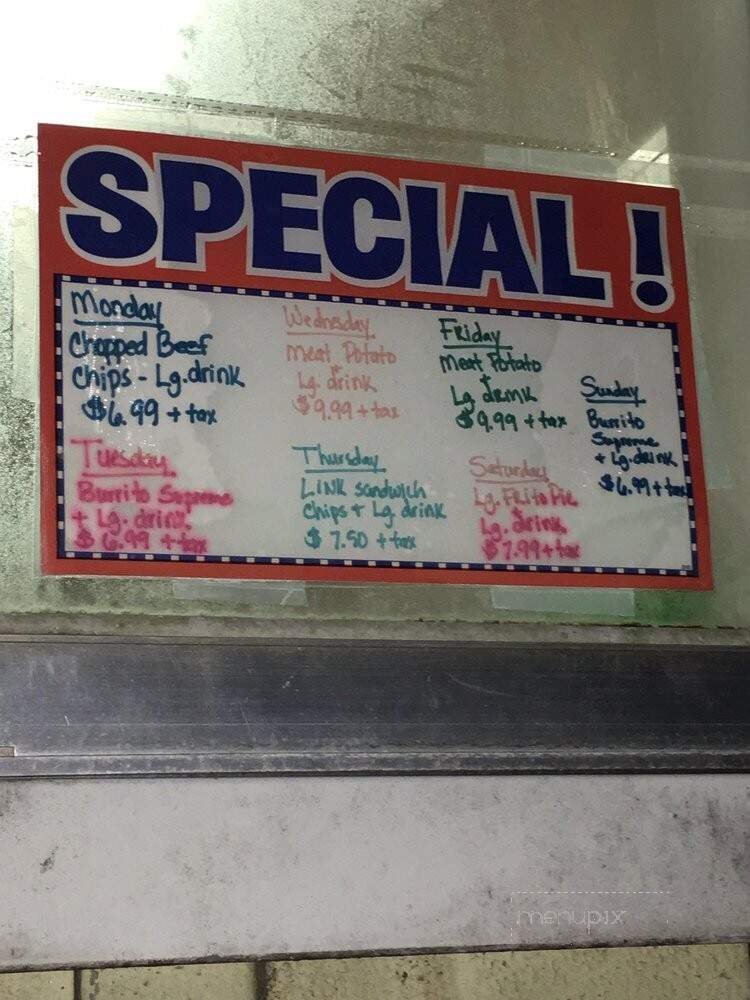 SPECIAL!
Monday
Chopped Beef
Chips - Lg. drink
$6.99 + tax
Tuesday
Burrito Supreme
+ Lg. drink
$6.99 + tax
Wednesday
Meat Potato
+
Lg. drink
$9.99 + tax
Thursday
LINK Sandwich
Chips + Lg. drink
$7.50 + tax
Friday
Meat Potato
+
Lg. drink
$9.99 + tax
Saturday
Lg. Frito Pie
+
Lg. drink
$7.99 + tax
Sunday
Burrito
Supreme
+ Lg. drink
$6.99 + tax
menupix